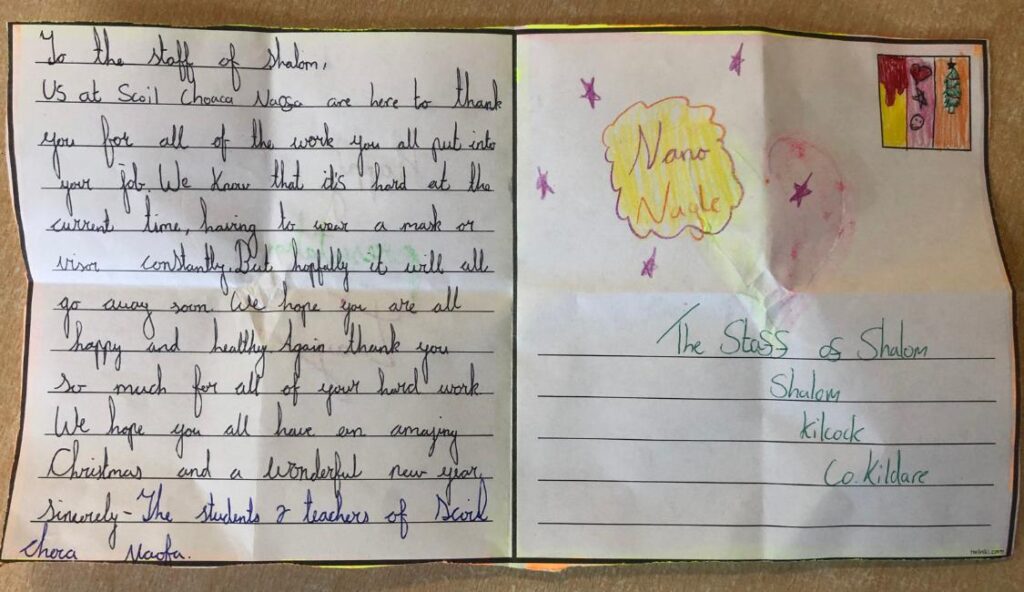 To the staff of Shalom,
Us at Scoil Choaca Naofa are here to thank
you for all of the work you all put into
your job. We Know that it's hard at the
current time, having to wear a mask or
visor constantly. But hopfully it will all
go away soon. We hope you are all
happy and healthy. Again thank you
so much for all of your hard work
We hope you all have an amazing
Christmas and a wonderful new year
sincerely - The students & teachers of Scoil
Naofa.
Nano
Nagle
The Staff of Shalom
Shalom
Kilcock
Co. Kildare
twinkl.com